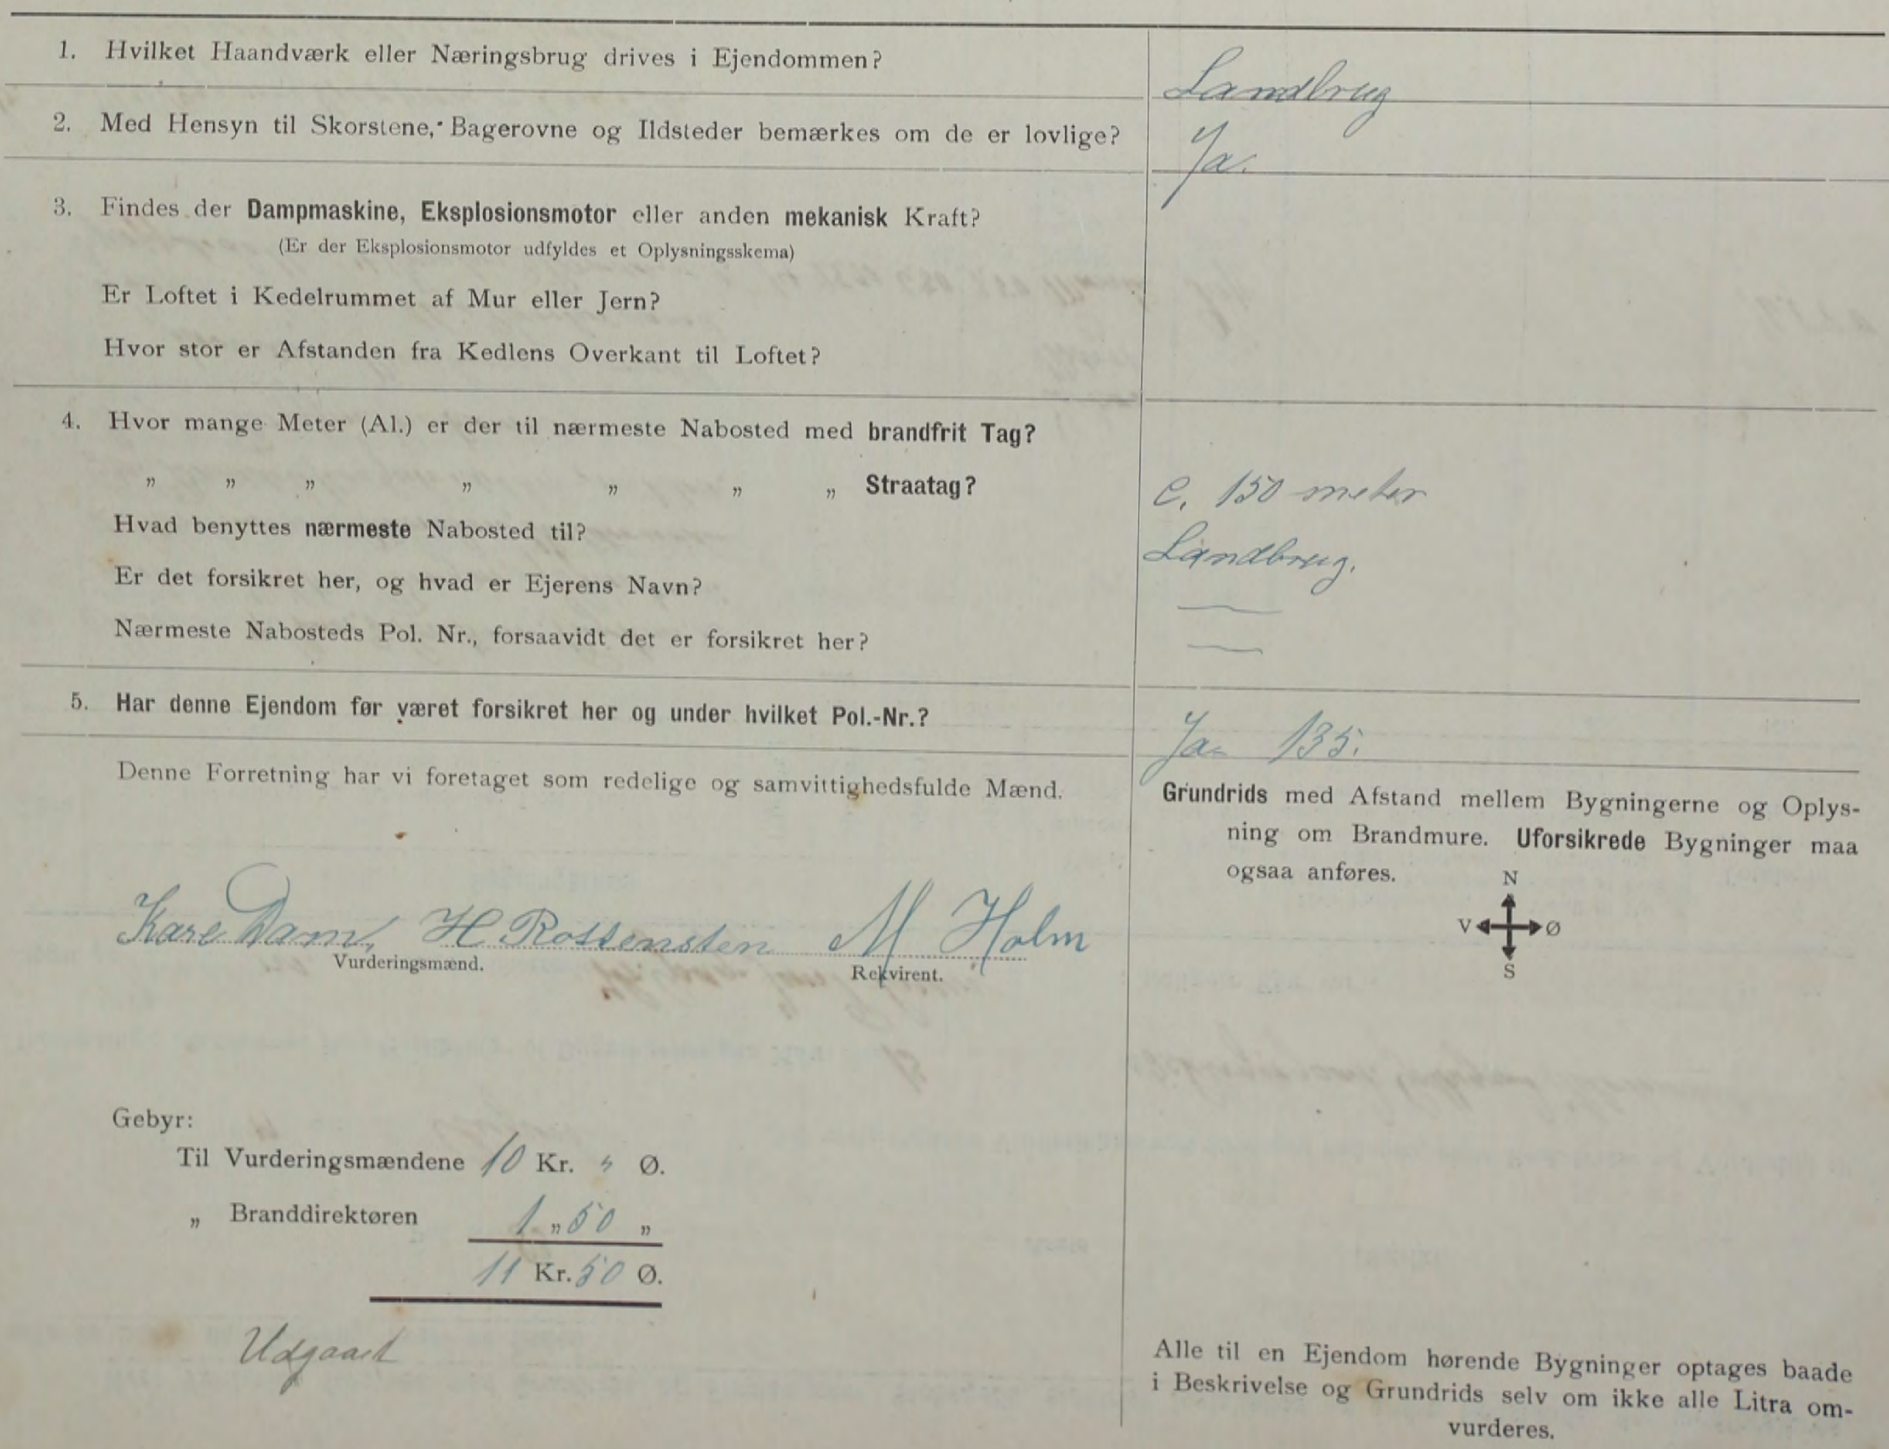 1. Hvilket Haandværk eller Næringsbrug drives i Ejendommen? Landbrug
2. Med Hensyn til Skorstene, Bagerovne og Ildsteder bemærkes om de er lovlige? Ja.
3. Findes der Dampmaskine, Eksplosionsmotor eller anden mekanisk Kraft?
(Er der Eksplosionsmotor udfyldes et Oplysningsskema)
Er Loftet i Kedelrummet af Mur eller Jern?
Hvor stor er Afstanden fra Kedlens Overkant til Loftet?
4. Hvor mange Meter (Al.) er der til nærmeste Nabosted med brandfrit Tag?
„ „ „ „ „ „ „ Straatag? c. 150 meter
Hvad benyttes nærmeste Nabosted til? Landbrug.
Er det forsikret her, og hvad er Ejerens Navn? —
Nærmeste Nabosteds Pol. Nr., forsaavidt det er forsikret her? —
5. Har denne Ejendom før været forsikret her og under hvilket Pol.-Nr.? Ja 135.
Denne Forretning har vi foretaget som redelige og samvittighedsfulde Mænd.
Kare Dam, H Rossensten M Holm
Vurderingsmænd. Rekvirent.
Gebyr:
Til Vurderingsmændene 10 Kr. „ Ø.
„ Branddirektøren 1 „ 50 „
11 Kr. 50 Ø.
Udgaaet
Grundrids med Afstand mellem Bygningerne og Oplys-
ning om Brandmure. Uforsikrede Bygninger maa
ogsaa anføres.
N
V Ø
S
Alle til en Ejendom hørende Bygninger optages baade
i Beskrivelse og Grundrids selv om ikke alle Litra om-
vurderes.